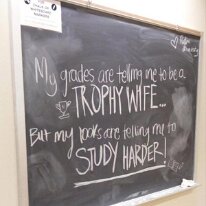 My grades are telling me to be a
TROPHY WIFE...
But my looks are telling me to
STUDY HARDER!